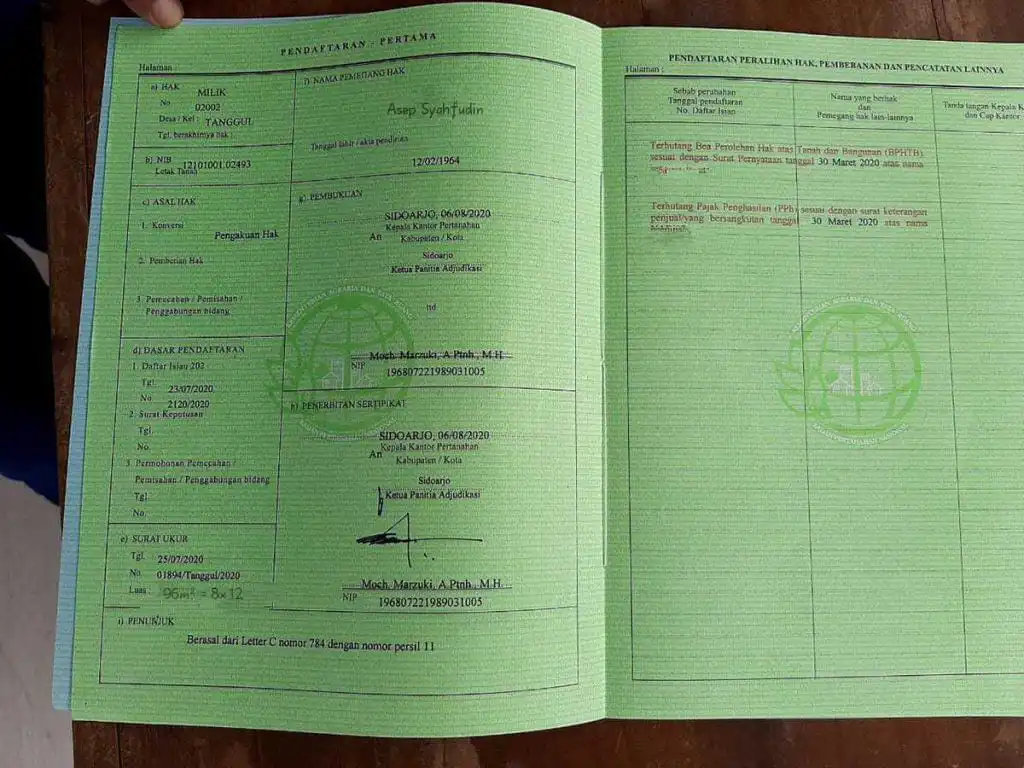 PENDAFTARAN - PERTAMA
Halaman :
a) HAK MILIK
No 02002
Desa / Kel : TANGGUL
Tgl. berakhirnya hak :
b) NIB 12101001.02493
Letak Tanah
c) ASAL HAK
1. Konversi
Pengakuan Hak
2. Pemberian Hak
3. Pemecahan / Pemisahan /
Penggabungan bidang
d) DASAR PENDAFTARAN
1. Daftar Isian 202
Tgl. 23/07/2020
No. 2120/2020
2. Surat Keputusan
Tgl.
No.
3. Permohonan Pemecahan /
Pemisahan / Penggabungan bidang
Tgl.
No.
e) SURAT UKUR
Tgl. 25/07/2020
No. 01894/Tanggul/2020
Luas : 96m² = 8x12
f) NAMA PEMEGANG HAK
Asep Syahfudin
Tanggal lahir / akta pendirian
12/02/1964
g) PEMBUKUAN
SIDOARJO, 06/08/2020
Kepala Kantor Pertanahan
An Kabupaten / Kota
Sidoarjo
Ketua Panitia Adjudikasi
ttd
Moch. Marzuki, A.Ptnh., M.H.
NIP 196807221989031005
h) PENERBITAN SERTIPIKAT
SIDOARJO, 06/08/2020
Kepala Kantor Pertanahan
An Kabupaten / Kota
Sidoarjo
Ketua Panitia Adjudikasi
Moch. Marzuki, A.Ptnh., M.H.
NIP 196807221989031005
i) PENUNJUK
Berasal dari Letter C nomor 784 dengan nomor persil 11
PENDAFTARAN PERALIHAN HAK, PEMBEBANAN DAN PENCATATAN LAINNYA
Halaman :
Sebab perubahan
Tanggal pendaftaran
No. Daftar Isian
Nama yang berhak
dan
Pemegang hak lain-lainnya
Tanda tangan Kepala K
dan Cap Kantor
Terhutang Bea Perolehan Hak atas Tanah dan Bangunan (BPHTB)
sesuai dengan Surat Pernyataan tanggal 30 Maret 2020 atas nama
Terhutang Pajak Penghasilan (PPh) sesuai dengan surat keterangan
penjual/yang bersangkutan tanggal 30 Maret 2020 atas nama